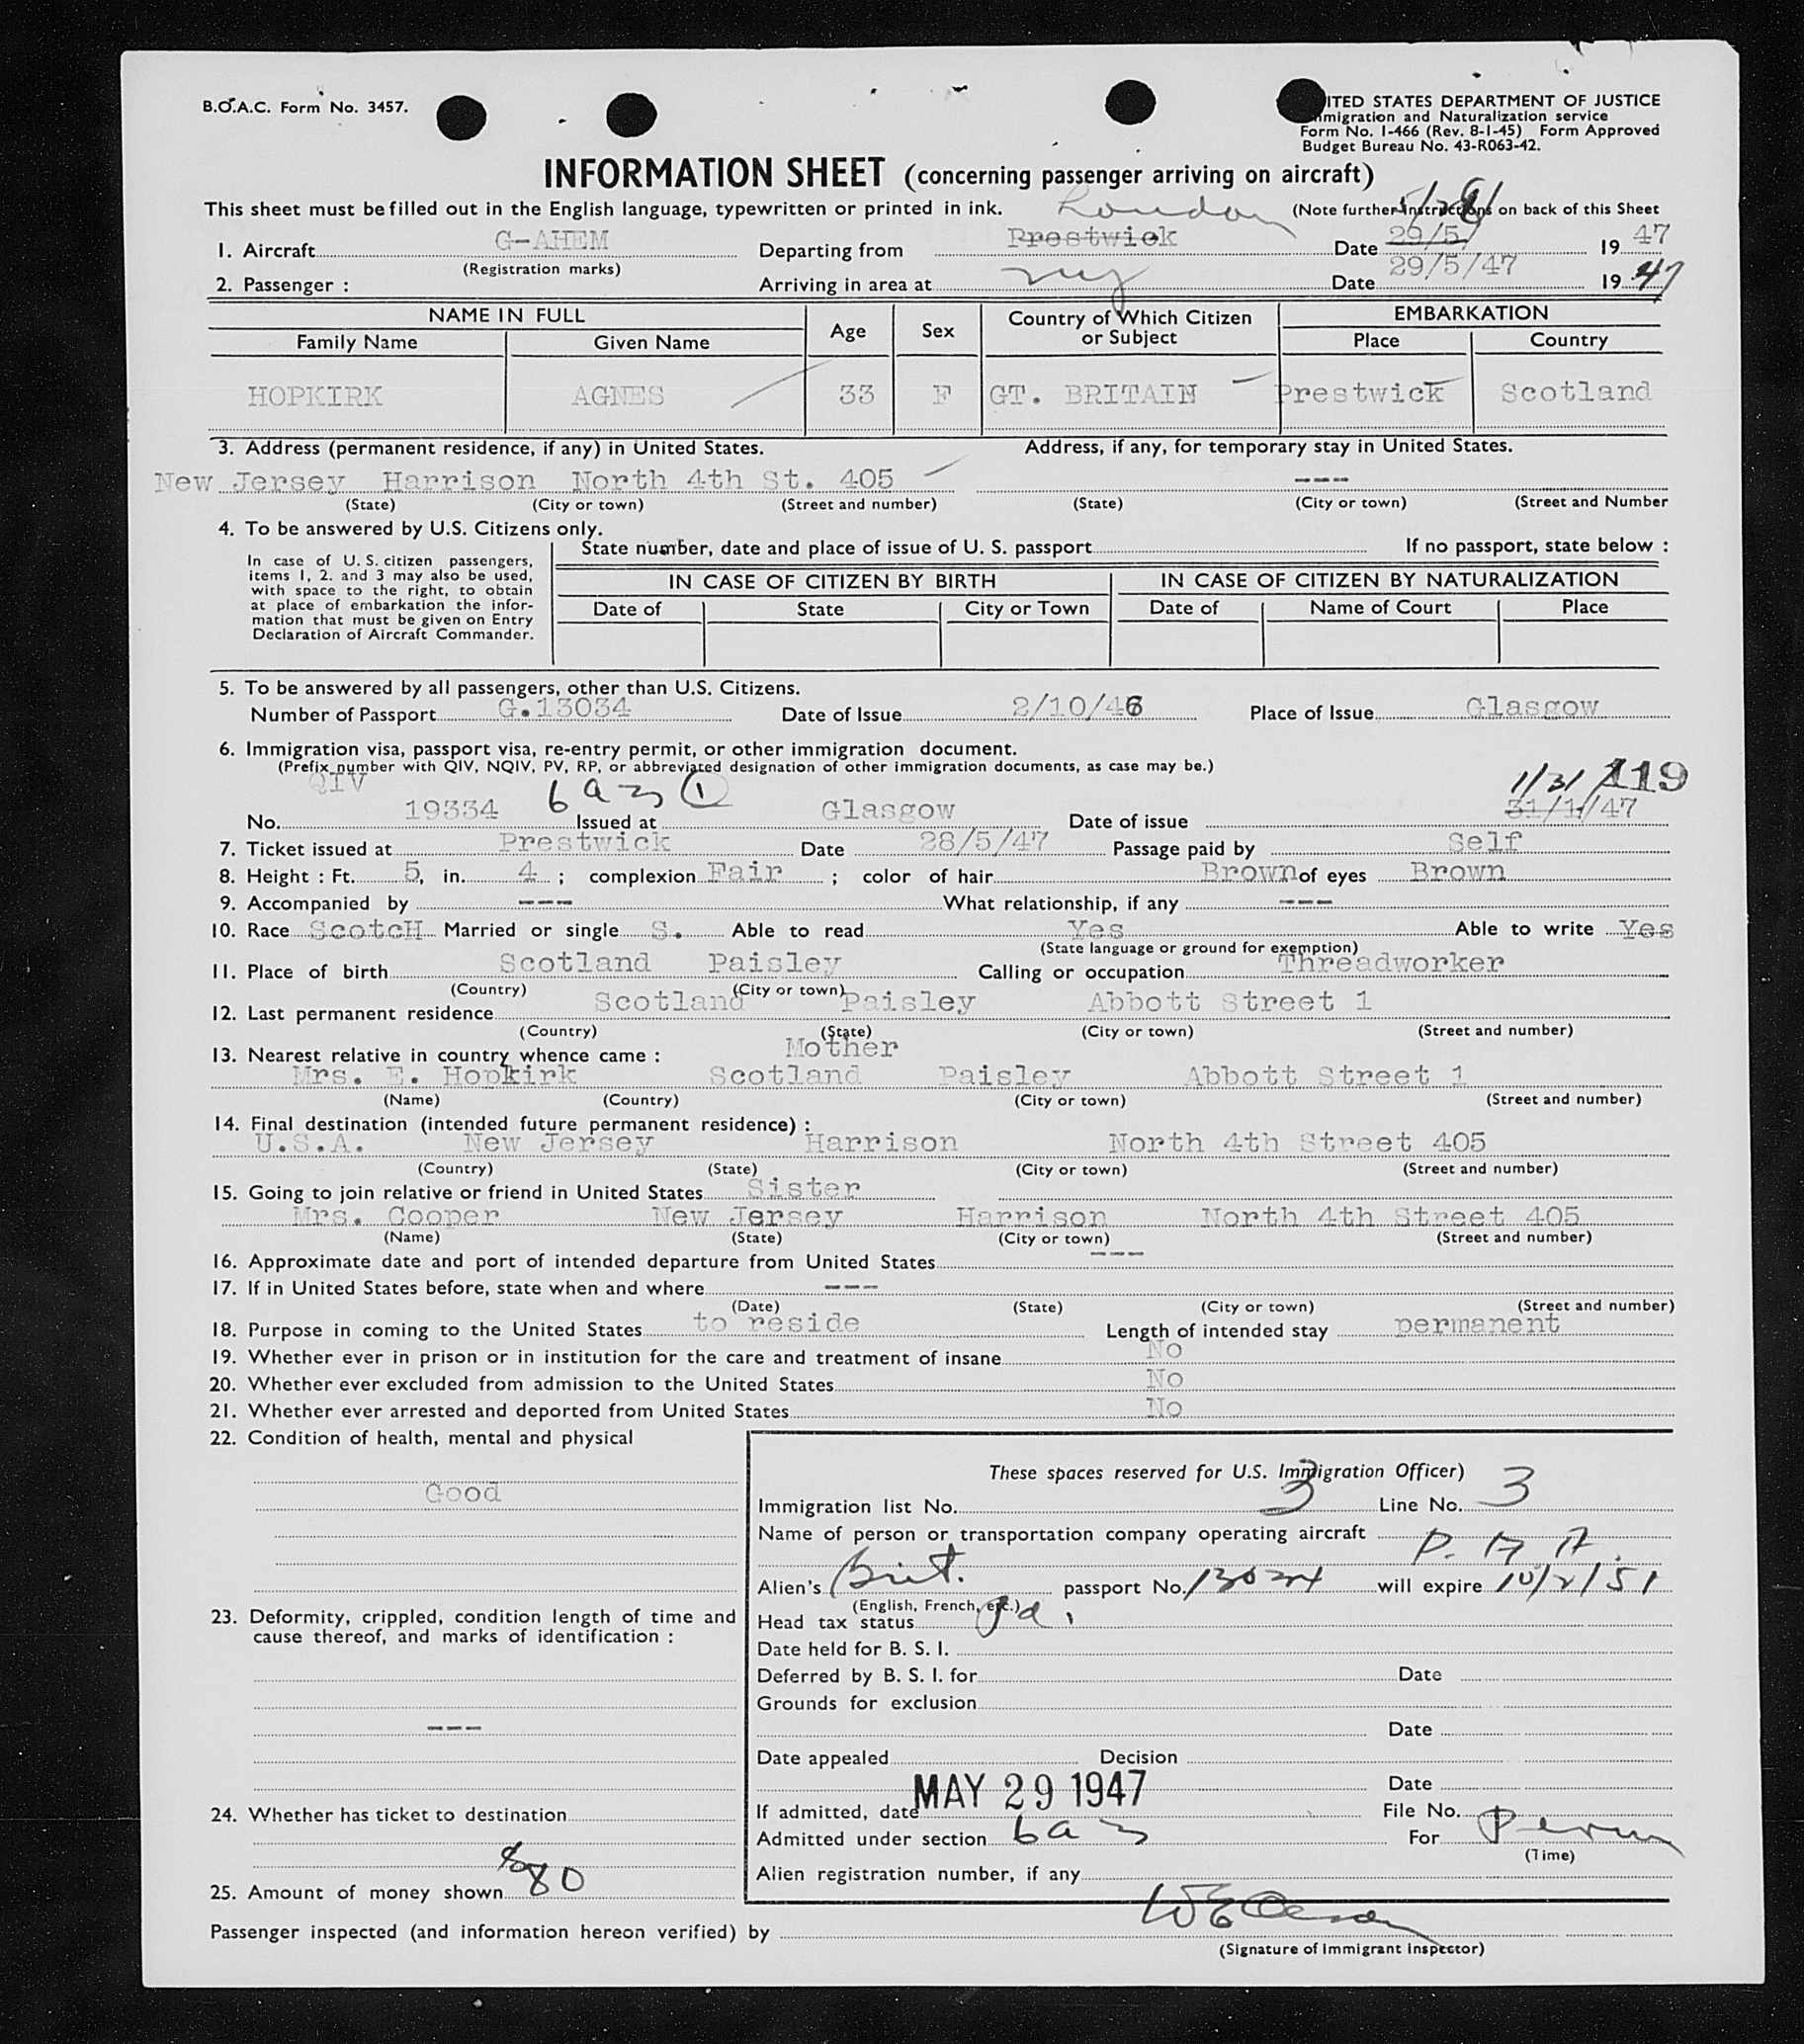 B.O.A.C. Form No. 3457.
ITED STATES DEPARTMENT OF JUSTICE
migration and Naturalization service
Form No. I-466 (Rev. 8-1-45) Form Approved
Budget Bureau No. 43-R063-42.
INFORMATION SHEET (concerning passenger arriving on aircraft)
This sheet must be filled out in the English language, typewritten or printed in ink. London (Note further instructions on back of this Sheet
1. Aircraft G-AHEM Departing from Prestwick Date 29/5/ 19 47
(Registration marks)
2. Passenger : Arriving in area at ny Date 29/5/47 19 47
NAME IN FULL Age Sex Country of Which Citizen or Subject EMBARKATION
Family Name Given Name Place Country
HOPKIRK AGNES 33 F GT. BRITAIN Prestwick Scotland
3. Address (permanent residence, if any) in United States. Address, if any, for temporary stay in United States.
New Jersey Harrison North 4th St. 405 ---
(State) (City or town) (Street and number) (State) (City or town) (Street and Number
4. To be answered by U.S. Citizens only.
State number, date and place of issue of U. S. passport If no passport, state below :
In case of U. S. citizen passengers,
items 1, 2. and 3 may also be used,
with space to the right, to obtain
at place of embarkation the infor-
mation that must be given on Entry
Declaration of Aircraft Commander.
IN CASE OF CITIZEN BY BIRTH IN CASE OF CITIZEN BY NATURALIZATION
Date of State City or Town Date of Name of Court Place
5. To be answered by all passengers, other than U.S. Citizens.
Number of Passport G.13034 Date of Issue 2/10/46 Place of Issue Glasgow
6. Immigration visa, passport visa, re-entry permit, or other immigration document.
(Prefix number with QIV, NQIV, PV, RP, or abbreviated designation of other immigration documents, as case may be.)
QIV 6a3 1 1/31/ 119
No. 19334 Issued at Glasgow Date of issue 31/1/47
7. Ticket issued at Prestwick Date 28/5/47 Passage paid by Self
8. Height : Ft. 5, in. 4 ; complexion Fair ; color of hair Brown of eyes Brown
9. Accompanied by --- What relationship, if any ---
10. Race ScotcH Married or single S. Able to read Yes Able to write Yes
(State language or ground for exemption)
11. Place of birth Scotland Paisley Calling or occupation Threadworker
(Country) (City or town)
12. Last permanent residence Scotland Paisley Abbott Street 1
(Country) (State) (City or town) (Street and number)
13. Nearest relative in country whence came : Mother
Mrs. E. Hopkirk Scotland Paisley Abbott Street 1
(Name) (Country) (City or town) (Street and number)
14. Final destination (intended future permanent residence) :
U.S.A. New Jersey Harrison North 4th Street 405
(Country) (State) (City or town) (Street and number)
15. Going to join relative or friend in United States Sister
Mrs. Cooper New Jersey Harrison North 4th Street 405
(Name) (State) (City or town) (Street and number)
16. Approximate date and port of intended departure from United States ---
17. If in United States before, state when and where ---
(Date) (State) (City or town) (Street and number)
18. Purpose in coming to the United States to reside Length of intended stay permanent
19. Whether ever in prison or in institution for the care and treatment of insane No
20. Whether ever excluded from admission to the United States No
21. Whether ever arrested and deported from United States No
22. Condition of health, mental and physical
Good
23. Deformity, crippled, condition length of time and
cause thereof, and marks of identification :
---
24. Whether has ticket to destination
25. Amount of money shown $80
These spaces reserved for U.S. Immigration Officer)
Immigration list No. 3 Line No. 3
Name of person or transportation company operating aircraft
Alien's Brit. passport No. 13034 will expire 10/2/51
(English, French, etc.)
Head tax status pd.
Date held for B. S. I.
Deferred by B. S. I. for Date
Grounds for exclusion
Date
Date appealed Decision
Date
If admitted, date MAY 29 1947 File No.
Admitted under section 6a3 For Perm
(Time)
Alien registration number, if any
Passenger inspected (and information hereon verified) by
(Signature of Immigrant Inspector)